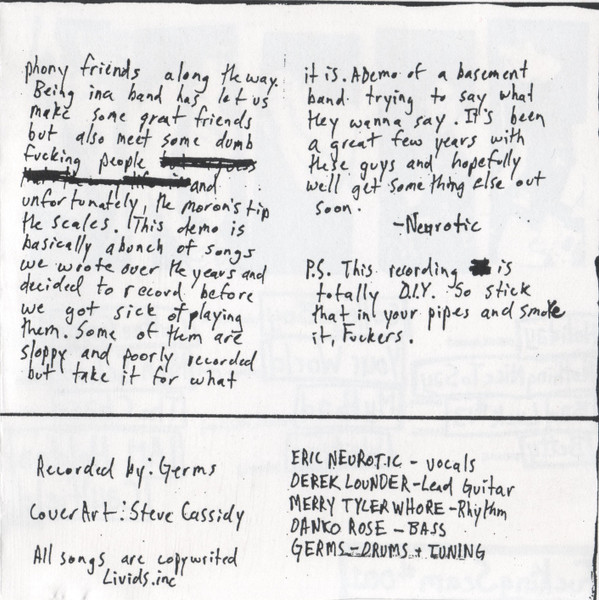 phony friends along the way.
Being in a band has let us
make some great friends
but also meet some dumb
fucking people
and
unfortunately, the moron's tip
the scales. This demo is
basically a bunch of songs
we wrote over the years and
decided to record before
we got sick of playing
them. Some of them are
sloppy and poorly recorded
but take it for what
it is. A Demo of a basement
band trying to say what
they wanna say. It's been
a great few years with
these guys and hopefully
we'll get something else out
soon.
-Neurotic
P.S. This recording is
totally D.I.Y. So stick
that in your pipes and smoke
it, Fuckers.
Recorded by: Germs
Cover Art: Steve Cassidy
All songs are copywrited
Livids.inc
ERIC NEUROTIC - vocals
DEREK LOUNDER - Lead Guitar
MERRY TYLER WHORE - Rhythm
DANKO ROSE - BASS
GERMS - DRUMS + TUNING